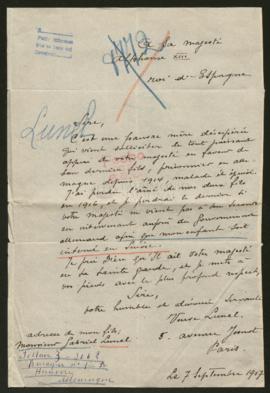 A Sa majesté
Alphonse XIII
roi d'Espagne
Lunel
Sire,
C'est une pauvre mère désespérée
qui vient solliciter le tout puissant
appui de votre majesté en faveur de
son dernier fils, prisonnier en alle
magne depuis 1914, malade et épuisé.
J'ai perdu l'aîné de mes deux fils
en 1916, et je perdrai le dernier si
votre majesté ne vient pas à mon secours
en intervenant auprès du gouvernement
allemand afin que mon enfant soit
interné en Suisse.
Je prie Dieu qu'il ait votre majesté
en sa Sainte garde, et je me mets à
vos pieds avec le plus profond respect,
Sire,
votre humble et dévouée Servante
Veuve Lunel.
8. avenue Junot
Paris.
adresse de mon fils:
Monsieur Gabriel Lunel
Allemagne
Le 7 Septembre 1917